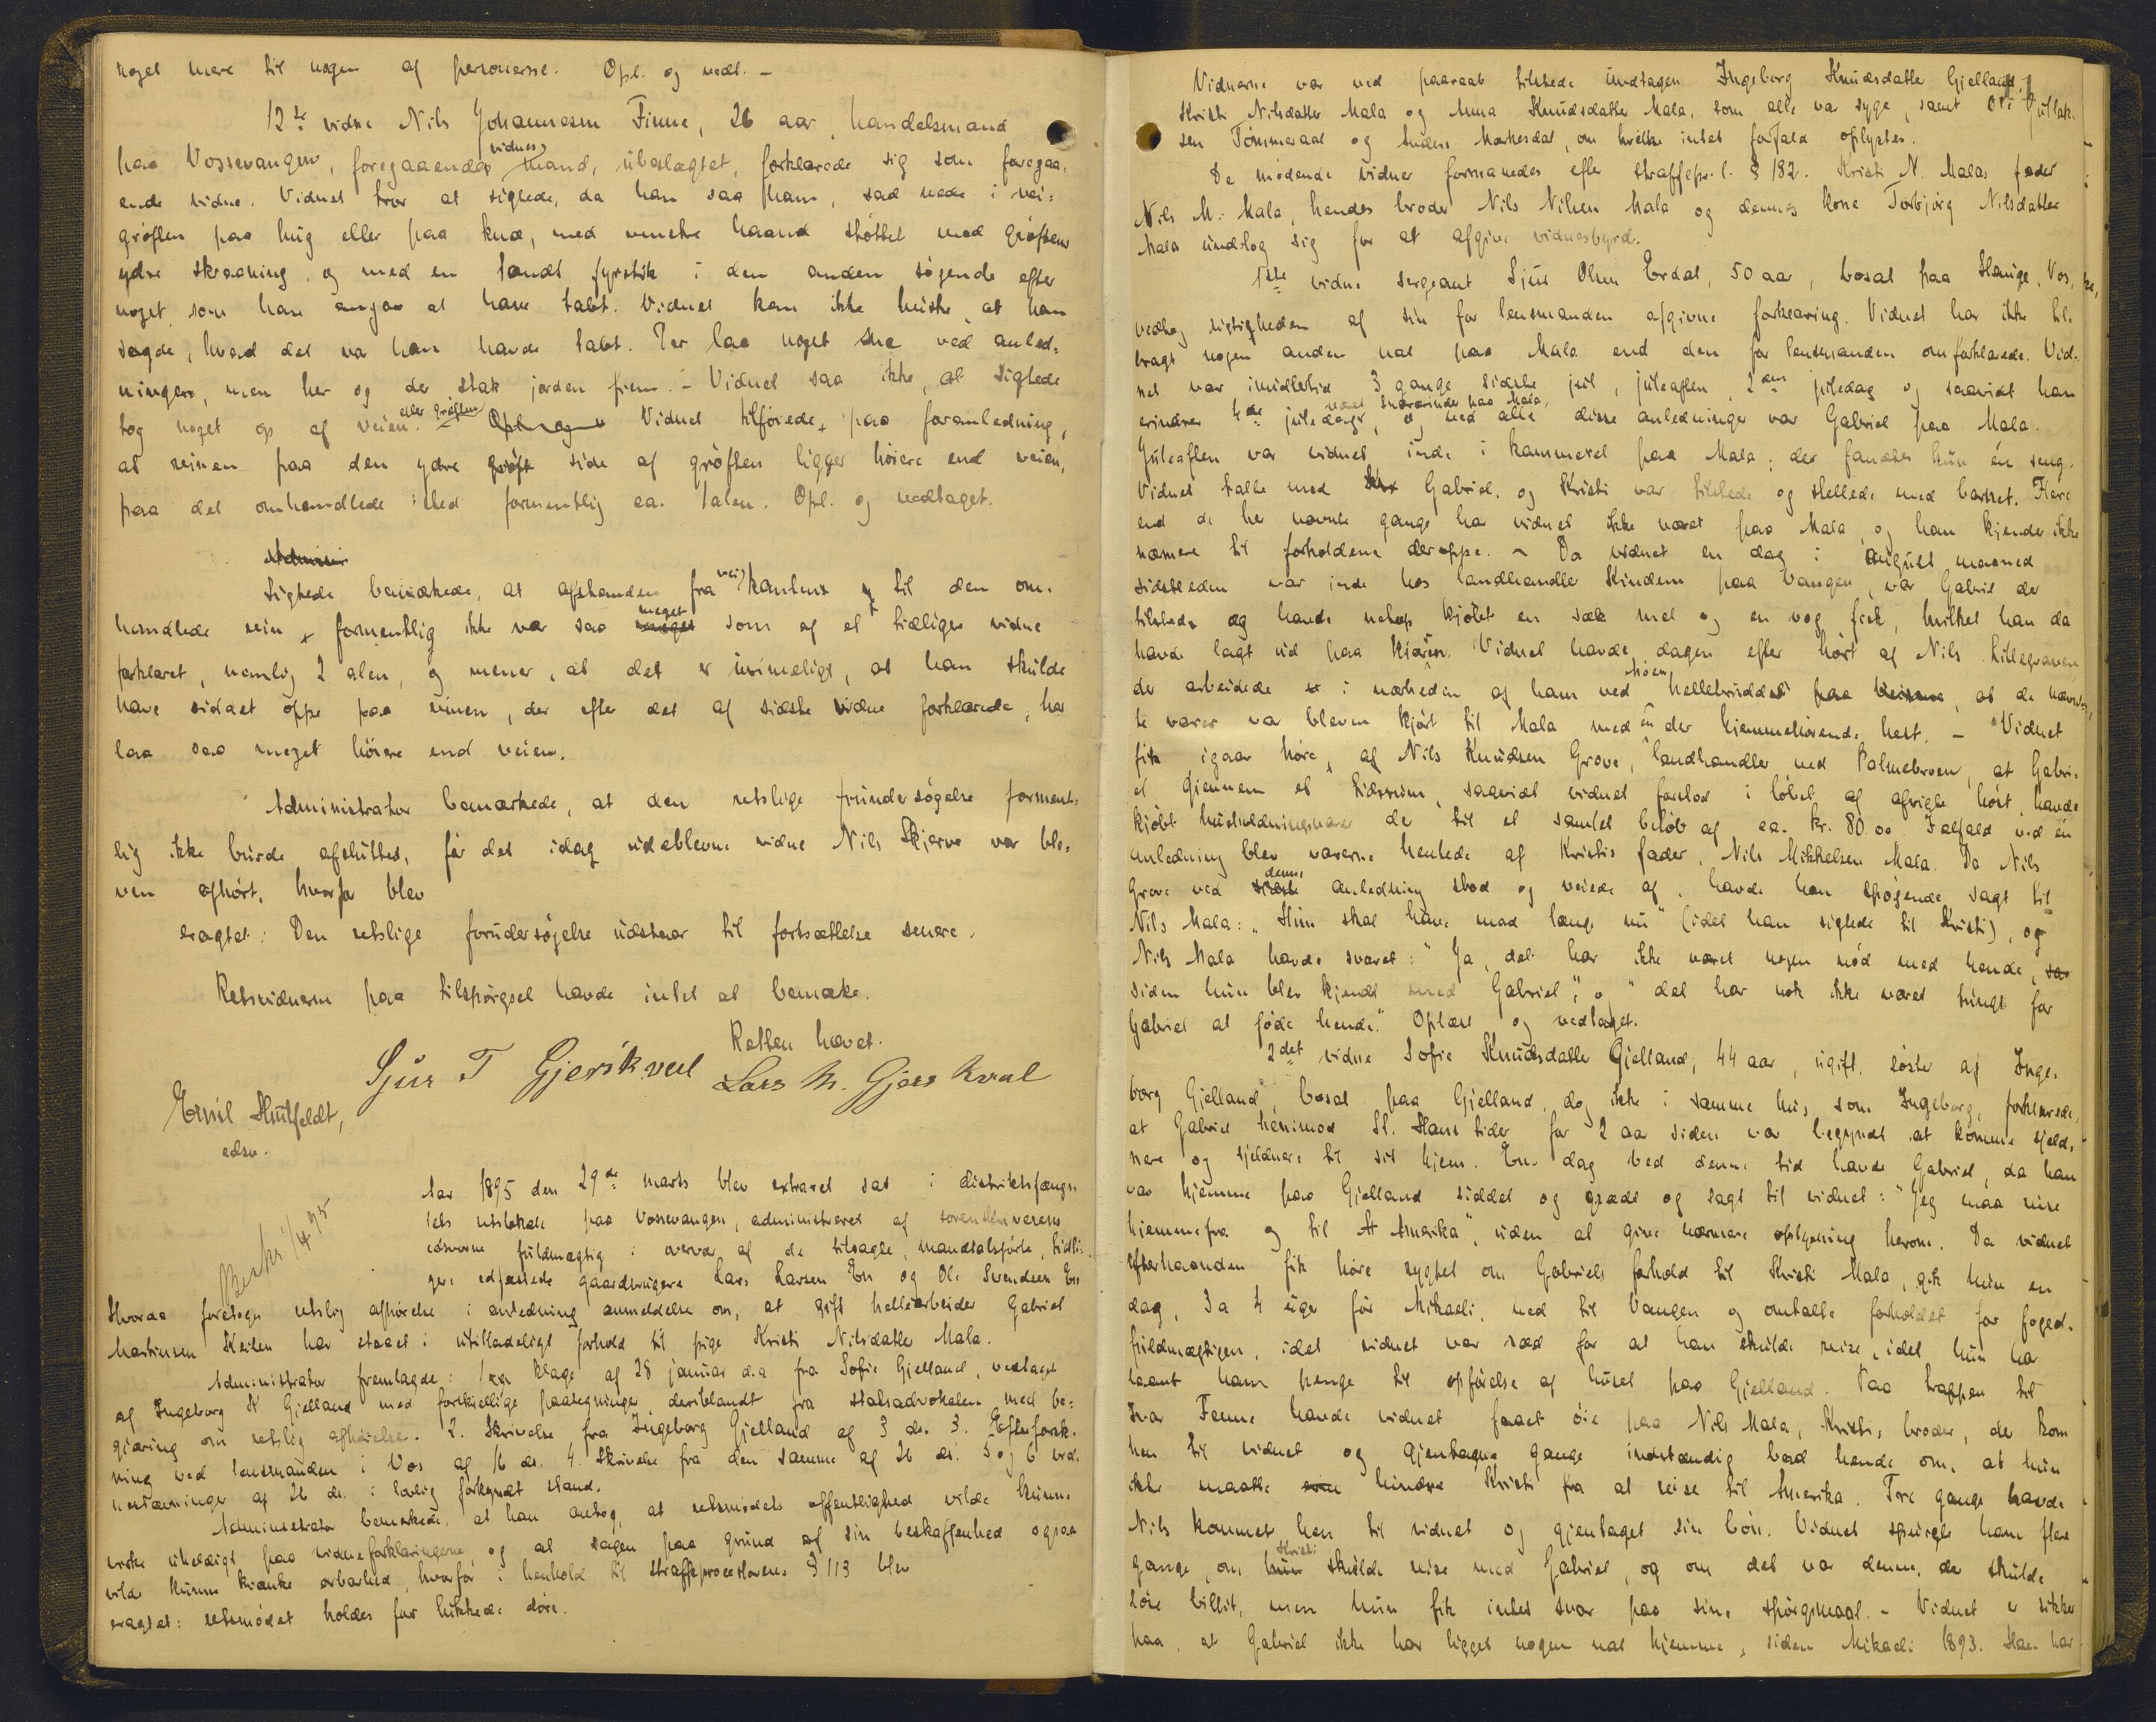 noget mere til nogen af personerne. Opl. og vedt. –
12te vidne Nils Johannesen Finne, 26 aar, handelsmand
paa Vossevangen, foregaaendes vidnes mand, ubeslægtet, forklarede sig som foregaa-
ende vidne. Vidnet tror at sigtede, da han saa ham, sad nede i vei-
grøften paa hug eller paa knæ, med venstre haand støttet mod grøftens
ydre skraaning, og med en tændt fyrstik i den anden søgende efter
noget, som han angav at have tabt. Vidnet kan ikke huske, at han
sagde, hvad det var han havde tabt. Der laa noget sne ved anled-
ningen, men her og der stak jorden frem. – Vidnet saa ikke, at sigtede
tog noget op af veien eller grøften. Vidnet tilføiede, paa foranledning,
at reinen paa den ydre side af grøften ligger høiere end veien,
paa det omhandlede sted formentlig ca. 1 alen. Opl. og vedtaget.
Sigtede bemærkede, at afstanden fra veikanten til den om-
handlede rein formentlig ikke var saa meget som af et tidligere vidne
forklaret, nemlig 2 alen, og mener, at det er urimeligt, at han skulde
have siddet oppe paa reinen, der efter det af sidste vidne forklarede, her
laa saa meget høiere end veien.
Administrator bemærkede, at den retslige forundersøgelse forment-
lig ikke burde afsluttes, før det idag udeblevne vidne Nils Skjerve var ble-
ven afhørt, hvorfor blev
eragtet: Den retslige forundersøgelse udstaar til fortsættelse senere.
Retsvidnerne paa tilspørgsel havde intet at bemærke.
Retten hævet.
Sjur T Gjerskvel Lars N. Gjers kval
Emil Huitfeldt,
edsv.
Besk. 1/4 95
Aar 1895 den 29de marts blev extraret sat i distriktsfængs-
lets retslokale paa Vossevangen, administreret af sorenskriverens
edsvorne fuldmægtig i overvær af de tilsagte, mandtalsførte, tidli-
gere edfæstede gaardbrugere Lars Larsen En og Ole Svendsen En
Hvoraa foretoges retslig afhørelse i anledning anmeldelse om, at gift hellearbeider Gabriel
Martinsen Keilen har staaet i utilladeligt forhold til pige Kristi Nilsdatter Mala.
Administrator fremlagde: 1. klage af 28 januar d.a. fra Sofie Gjelland, vedtaget
af Ingeborg K Gjelland med forskjellige paategninger, deriblandt fra statsadvokaten med be-
gjæring om retslig afhørelse. 2. Skrivelse fra Ingeborg Gjelland af 3 ds. 3. Efterforsk-
ning ved lensmanden i Vos af 16 ds. 4. Skrivelse fra den samme af 26 ds. 5 og 6 vid-
nestævninger af 26 ds. i lovlig forkyndt stand.
Administrator bemærkede, at han antog, at retsmødets offentlighed vilde kunne
virke uheldigt paa vidneforklaringerne og at sagen paa grund af sin beskaffenhed ogsaa
vilde kunne krænke ærbarhed, hvorfor i henhold til straffeproceslovens § 113 blev
eragtet: retsmødet holdes for lukkede døre.
Vidnerne var ved paaraab tilstede undtagen Ingeborg Knudsdatter Gjelland,
Kristi Nilsdatter Mala og Anna Knudsdatter Mala, som alle var syge, samt Ole Gullak-
sen Tømmeraas og Anders Mørkesdal, om hvilke intet forfald oplystes.
De mødende vidner formanedes efter straffepr.l. § 182. Kristi N. Malas fader
Nils M. Mala, hendes broder Nils Nilsen Mala og dennes kone Torbjørg Nilsdatter
Mala undslog sig for at afgive vidnesbyrd.
1ste vidne sergeant Sjur Olsen Erdal, 50 aar, bosat paa Hauge, Vos,
vedtog rigtigheden af sin for lensmanden afgivne forklaring. Vidnet har ikke til-
bragt nogen anden nat paa Mala end den for lensmanden omforklarede. Vid-
net var imidlertid 3 gange sidste jul, juleaften, 2den juledag og saavidt han
erindrer 4de juledag, været snarærinde paa Mala, og ved alle disse anledninger var Gabriel paa Mala.
Juleaften var vidnet inde i kammeret paa Mala; der fandtes kun én seng.
Vidnet talte med Gabriel, og Kristi var tilstede og stellede med barnet. Flere
end de her nævnte gange har vidnet ikke været paa Mala, og han kjender ikke
nærmere til forholdene deroppe. – Da vidnet en dag i august maaned
sidstleden var inde hos landhandler Kindem paa Vangen, var Gabriel der
tilstede og havde netop kjøbt en sæk mel og en vog fisk, hvilket han da
havde lagt ud paa kjærren. Vidnet havde dagen efter hørt af Nils Lillegraven,
der arbeidede i nærheden af ham ved hellebruddet, at de nævn-
te varer var bleven kjørt til Mala med en der hjemmehørende hest. – Vidnet
fik igaar høre af Nils Knudsen Grove, landhandler ved Palmebroen, at Gabri-
el gjennem et tidsrum, saavidt vidnet forstod i løbet af afvigte høst, havde
kjøbt husholdningsvarer der til et samlet beløb af ca. kr. 80.00. Ialfald ved én
anledning blev varerne hentede af Kristis fader, Nils Mikkelsen Mala. Da Nils
Grove ved denne anledning stod og veiede af, havde han spøgende sagt til
Nils Mala: "Hun skal have mad længe nu" (idet han sigtede til Kristi), og
Nils Mala havde svaret: "Ja, det har ikke været nogen nød med hende,
siden hun blev kjendt med Gabriel", og "det har nok ikke været tungt for
Gabriel at føde hende." Oplæst og vedtaget.
2det vidne Sofie Knudsdatter Gjelland, 44 aar, ugift, søster af Inge-
borg Gjelland, bosat paa Gjelland, dog ikke i samme hus som Ingeborg, forklarede,
at Gabriel henimod St. Hans tider for 2 aar siden var begyndt at komme sjeld-
nere og sjeldnere til sit hjem. En dag ved denne tid havde Gabriel, da han
var hjemme paa Gjelland siddet og grædt og sagt til vidnet: "Jeg maa reise
hjemmefra og til Amerika", uden at give nærmere oplysning herom. Da vidnet
efterhaanden fik høre rygtet om Gabriels forhold til Kristi Mala, gik hun en
dag, 3 a 4 uger før Mikaeli, ned til Vangen og omtalte forholdet for foged-
fuldmægtigen, idet vidnet var ræd for at han skulde reise, idet hun har
laant ham penge til opførelse af huset paa Gjelland. Paa trappen til
Ivar Fenne havde vidnet faaet øie paa Nils Mala, Kristis broder, der kom
hen til vidnet og gjentagne gange indstændig bad hende om, at hun
ikke maatte hindre Kristi fra at reise til Amerika. Tre gange havde
Nils kommet hen til vidnet og gjentaget sin bøn. Vidnet spurgte ham flere
gange, om Kristi skulde reise med Gabriel, og om det var denne, der skulde
løse billet, men hun fik intet svar paa sine spørgsmaal. – Vidnet er sikker
paa, at Gabriel ikke har ligget nogen nat hjemme, siden Mikaeli 1893. Han har